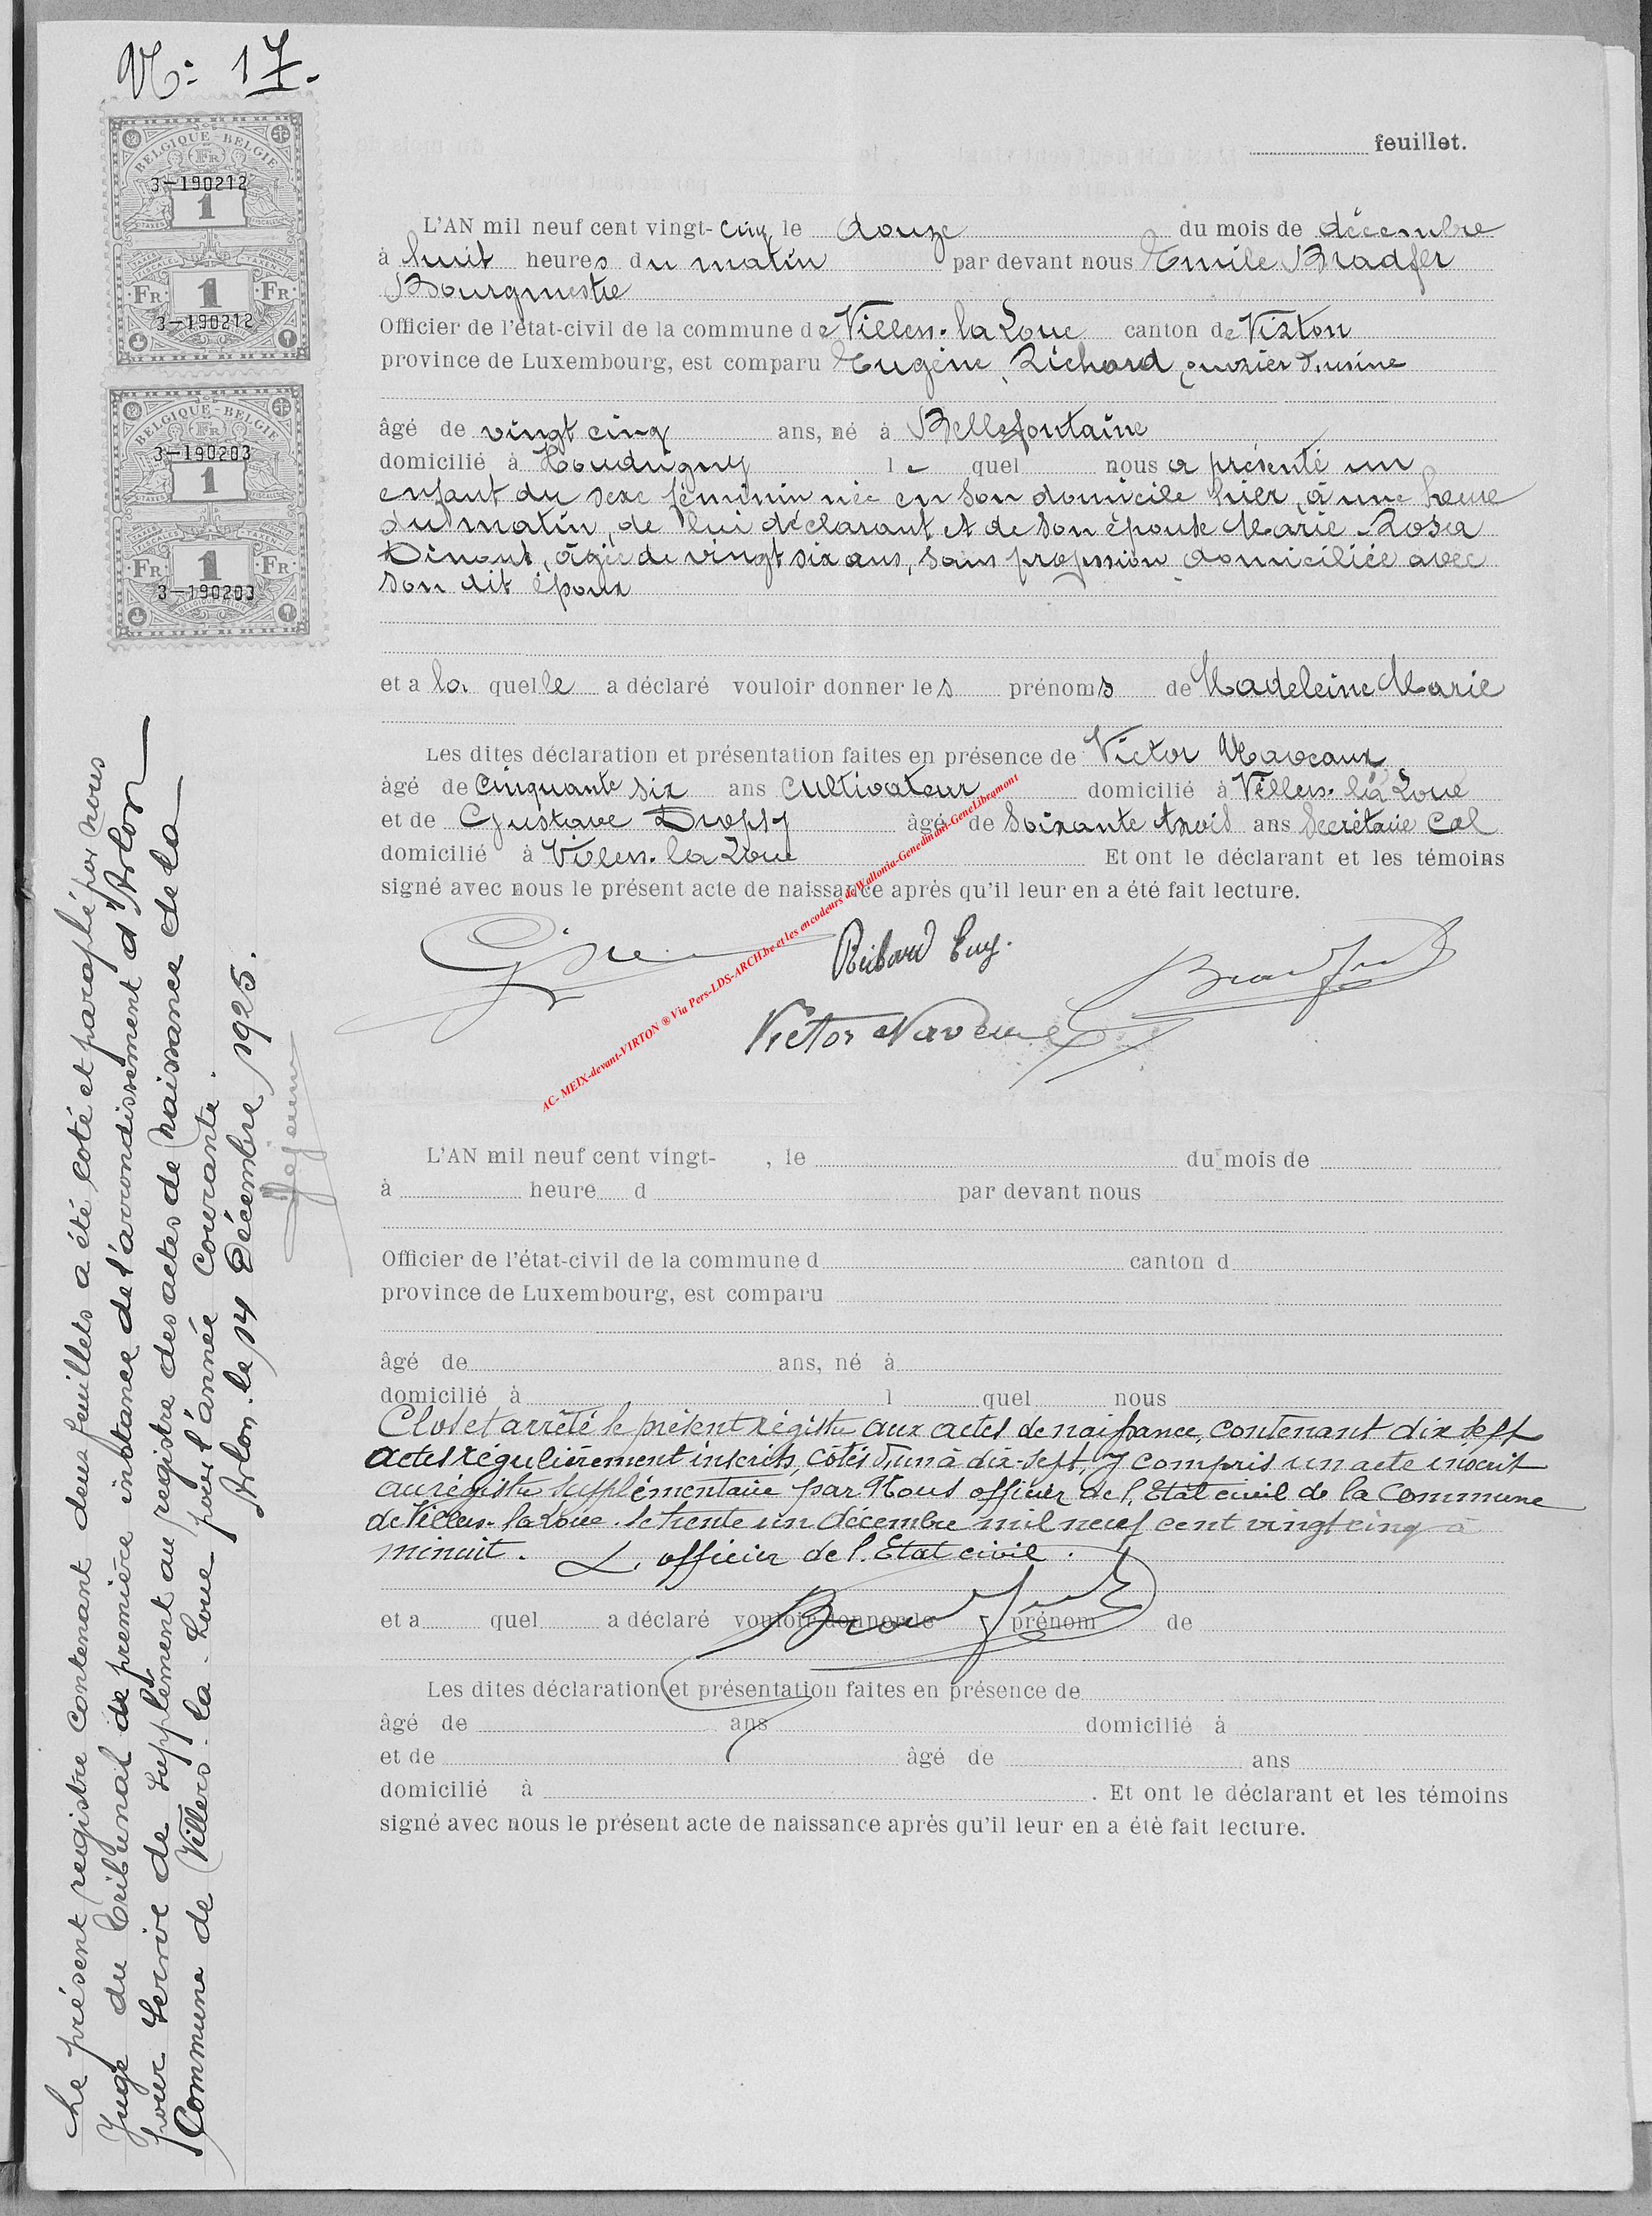 N: 17.
BELGIQUE-BELGIE
FR
3-190212
1
FR. 1 FR.
3-190212
BELGIQUE-BELGIE
FR
3-190203
1
FR. 1 FR.
3-190203
feuillet.
L'AN mil neuf cent vingt-cinq le douze du mois de décembre
à huit heures du matin par devant nous Emile Bradfer
Bourgmestre
Officier de l'état-civil de la commune de Villers-la-Loue canton de Virton
province de Luxembourg, est comparu Eugène Richard, ouvrier d'usine
âgé de vingt cinq ans, né à Bellefontaine
domicilié à Houdrigny le quel nous a présenté un
enfant du sexe féminin née en son domicile hier, à une heure
du matin, de lui déclarant et de son épouse Marie Rosa
Dinant, âgée de vingt six ans, sans profession domiciliée avec
son dit époux
et a la quelle a déclaré vouloir donner les prénoms de Madeleine Marie
Les dites déclaration et présentation faites en présence de Victor Naveaux
âgé de Cinquante six ans Cultivateur domicilié à Villers-la Loue
et de Gustave Dropsy âgé de Soixante trois ans Secrétaire Cal
domicilié à Villers-la Loue Et ont le déclarant et les témoins
signé avec nous le présent acte de naissance après qu'il leur en a été fait lecture.
Richard Eug.
Bradfer
Victor Naveaux
AC- MEIX-devant-VIRTON ® Via Pers-LDS-ARCH.be et les encodeurs de Wallonia-Genedinant-GeneLibramont
L'AN mil neuf cent vingt- , le du mois de
à heure d par devant nous
Officier de l'état-civil de la commune d canton d
province de Luxembourg, est comparu
âgé de ans, né à
domicilié à l quel nous
Clos et arrêté le présent régistre aux actes de naissance, contenant dix sept
actes régulièrement inscrits, côtés d'un à dix-sept, y compris un acte inscrit
au régistre supplémentaire par Nous officier de l'Etat civil de la Commune
de Villers-la Loue. le trente un décembre mil neuf cent vingt cinq à
minuit. L'officier de l'Etat civil.
Bradfer
et a quel a déclaré vouloir donner le prénom de
Les dites déclaration et présentation faites en présence de
âgé de ans domicilié à
et de âgé de ans
domicilié à . Et ont le déclarant et les témoins
signé avec nous le présent acte de naissance après qu'il leur en a été fait lecture.
Le présent registre contenant deux feuillets a été coté et paraphé par nous
Juge du Tribunal de première instance de l'arrondissement d'Arlon
pour servir de supplément au registre des actes de naissance de la
Commune de Villers-la-Loue pour l'année courante.
Arlon. le 14 Décembre 1925.